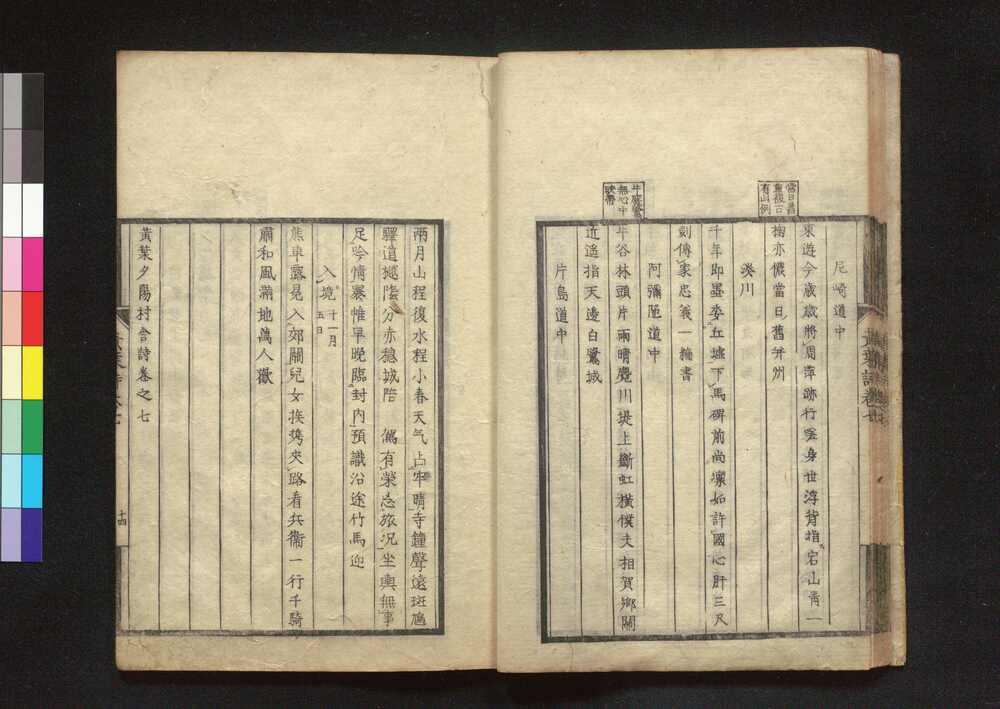 當日舊
重複二
有此例
尼崎道中
東遊今歲歲將周萍跡行逐身世浮背指宕山靑一
抹亦儂當日舊幷州
湊川
千年卽墨委丘墟下馬碑前尚凜如許國心肝三尺
劍傳家忠義一牘書
阿彌陁道中
無心中
映帶
半谷林頭片雨晴魔川堤上斷虹橫僕夫相賀鄉關
近遥指天邊白鷺城
片島道中
兩月山程復水程小春天气占牢晴寺鐘聲遠斑鳩
驛道樾陰分赤穗城陪 駕有榮忘旅況坐輿無事
足吟情裹惟早晚臨封內預識沿途竹馬迎
入境 十一月五日
熊車露冕入郊關兒女挨携夾路看兵衞一行千騎
肅和風滿地萬人歡
黃葉夕陽村舍詩卷之七
黃葉詩卷七
十四